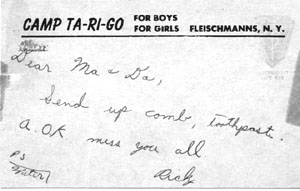 CAMP TA-RI-GO FOR BOYS
FOR GIRLS FLEISCHMANNS, N. Y.
Dear Ma & Da,
Send up comb, toothpaste.
A.OK miss you all
PS